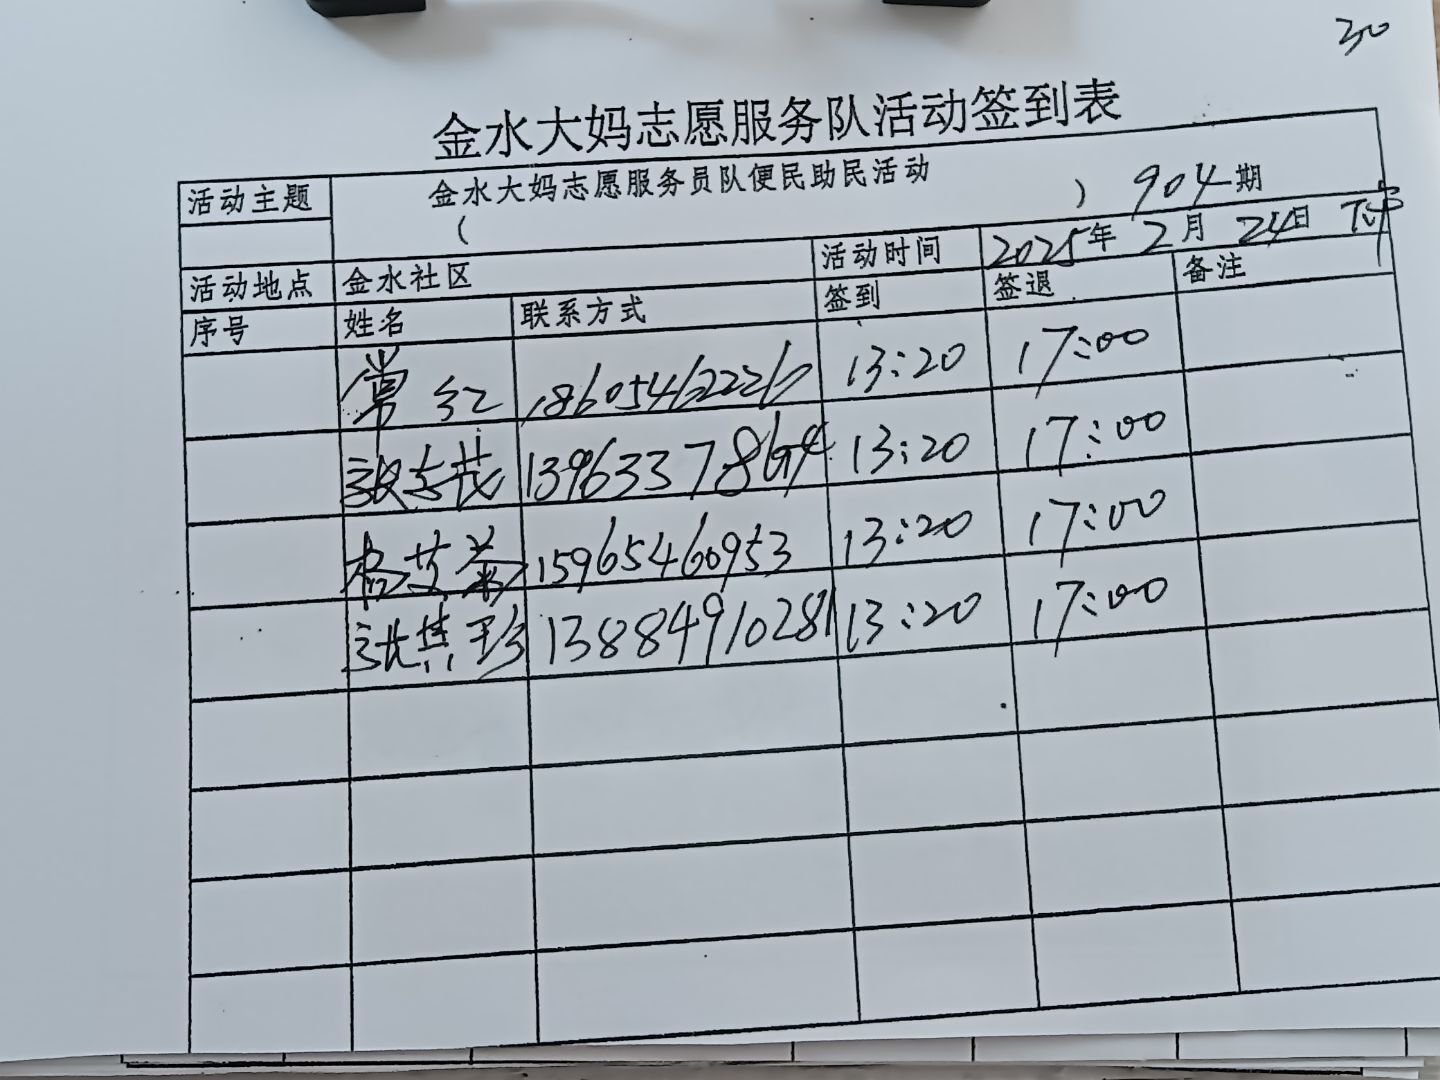 30
金水大妈志愿服务队活动签到表
活动主题 金水大妈志愿服务员队便民助民活动
( ) 904期
活动地点 金水社区 活动时间 2025年 2月 24日 下午
序号 姓名 联系方式 签到 签退 备注
常红 13:20 17:00
志茂 13:20 17:00
杨艾菊 15965460953 13:20 17:00
张其珍 13884910281 13:20 17:00